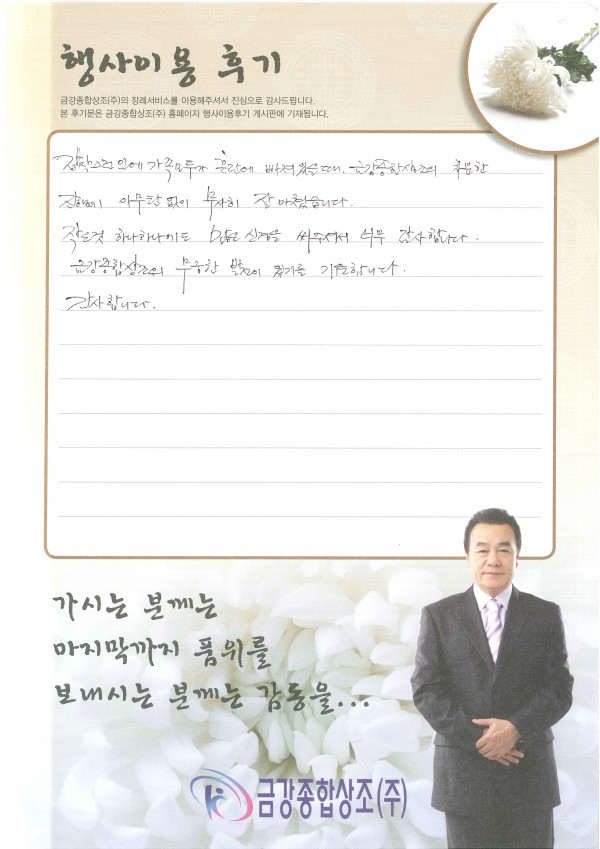 행사이용 후기
금강종합상조(주)의 장례서비스를 이용해주셔서 진심으로 감사드립니다.
본 후기문은 금강종합상조(주) 홈페이지 행사이용후기 게시판에 기재됩니다.
갑작스런 일에 가족모두가 혼란에 빠져 있을때. 금강종합상조의
진행이 아무탈 없이 무사히 잘 마쳤습니다.
작은것 하나하나에도 많은 신경을 써주셔서 너무 감사합니다.
금강종합상조의 무궁한 발전이 있기를 기원합니다.
감사합니다.
가시는 분께는
마지막까지 품위를
보내시는 분께는 감동을...
금강종합상조(주)